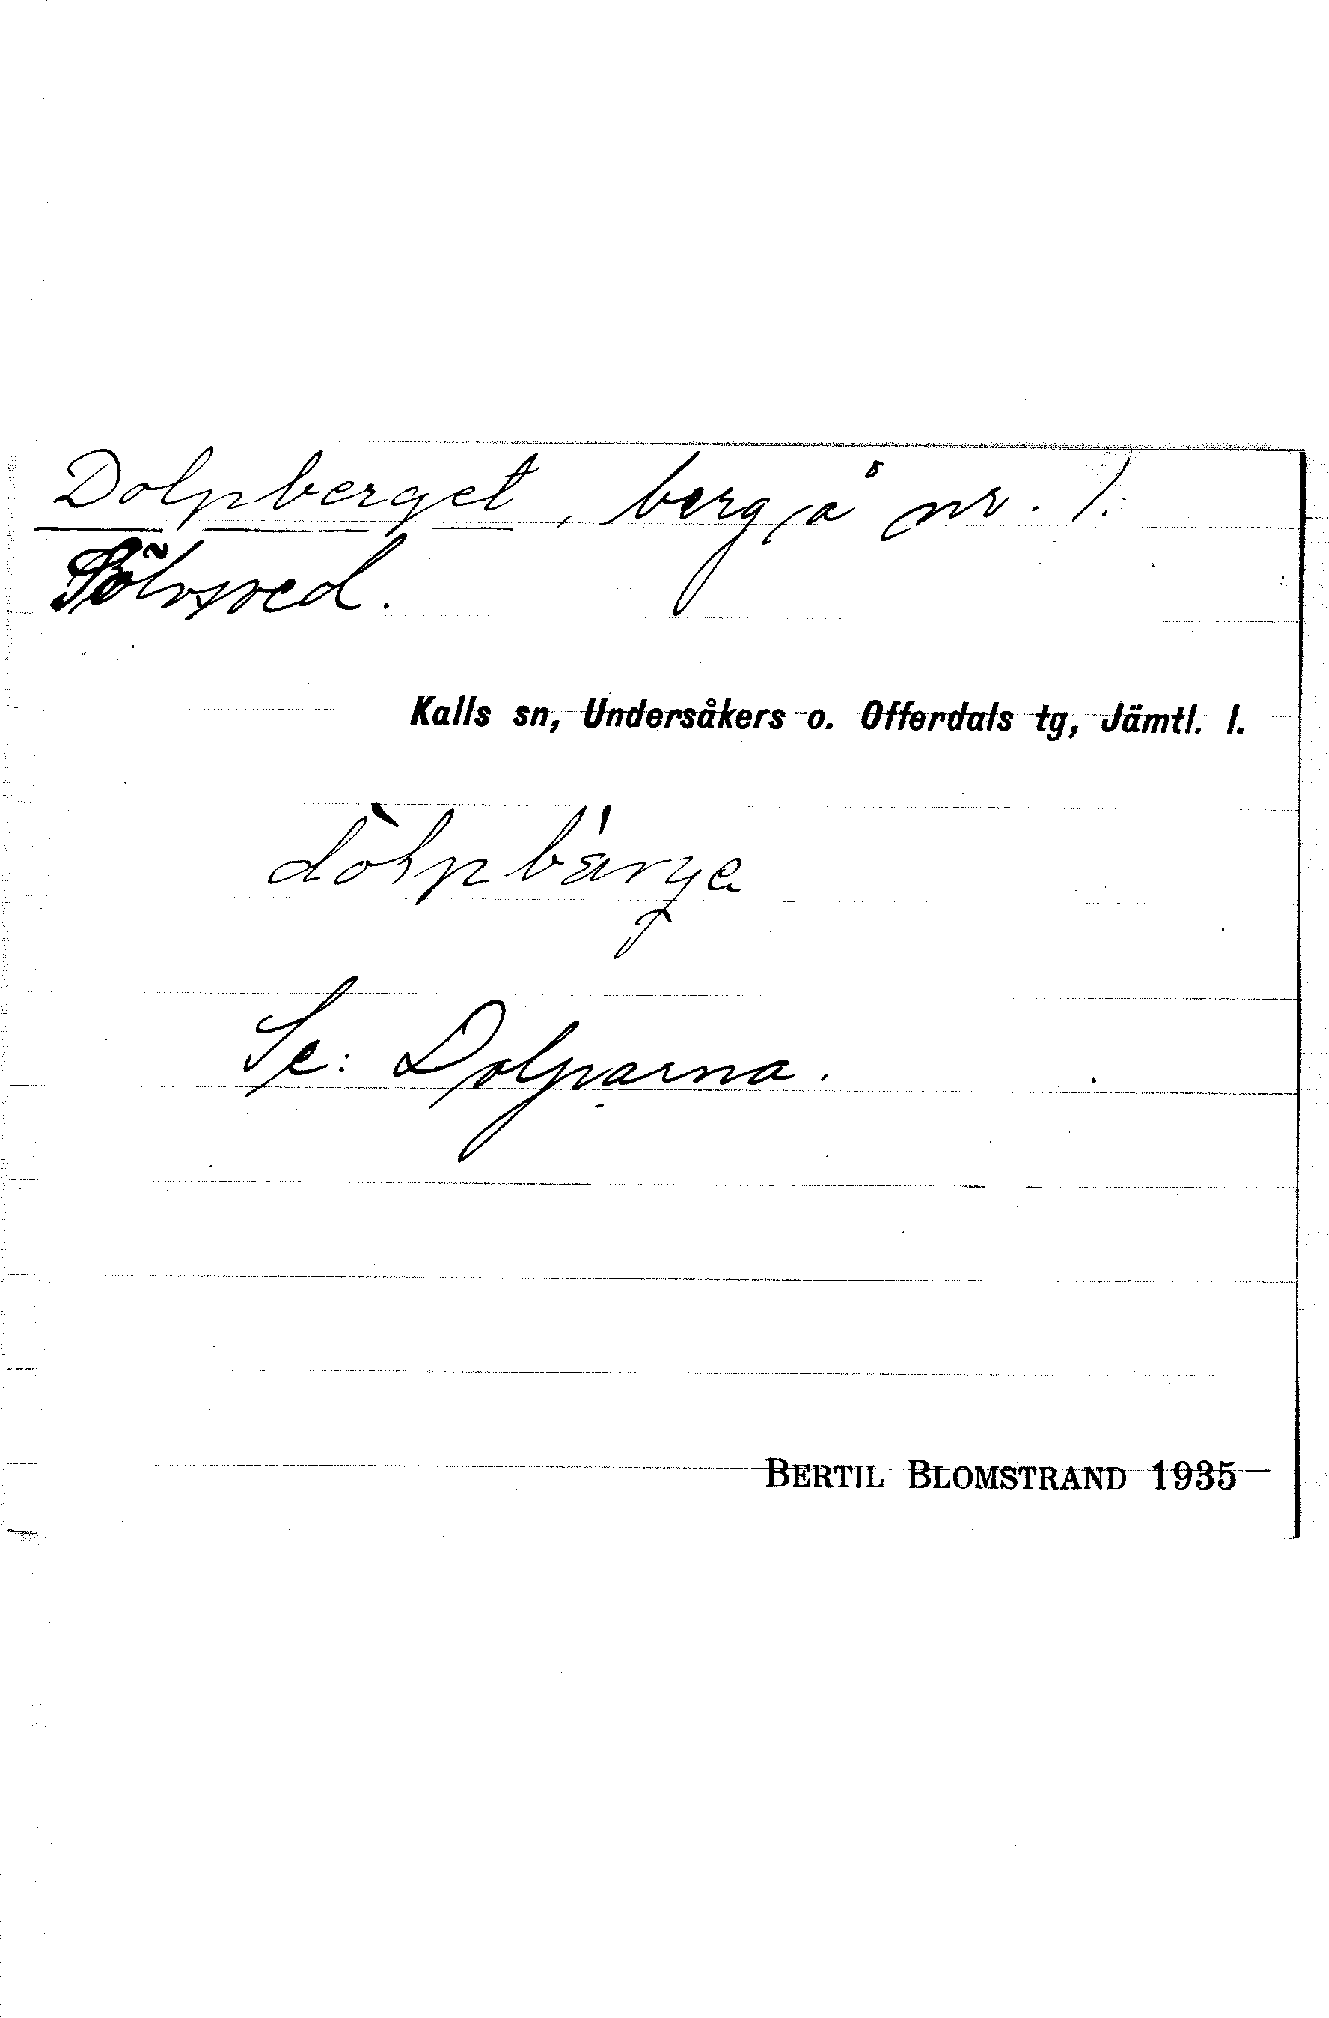 Dolpberget, berg å nr. 1.
Sölvsved.
Kalls sn, Undersåkers o. Offerdals tg, Jämtl. l.
dòlpbárja
Se: Dolparna.
BERTIL BLOMSTRAND 1935